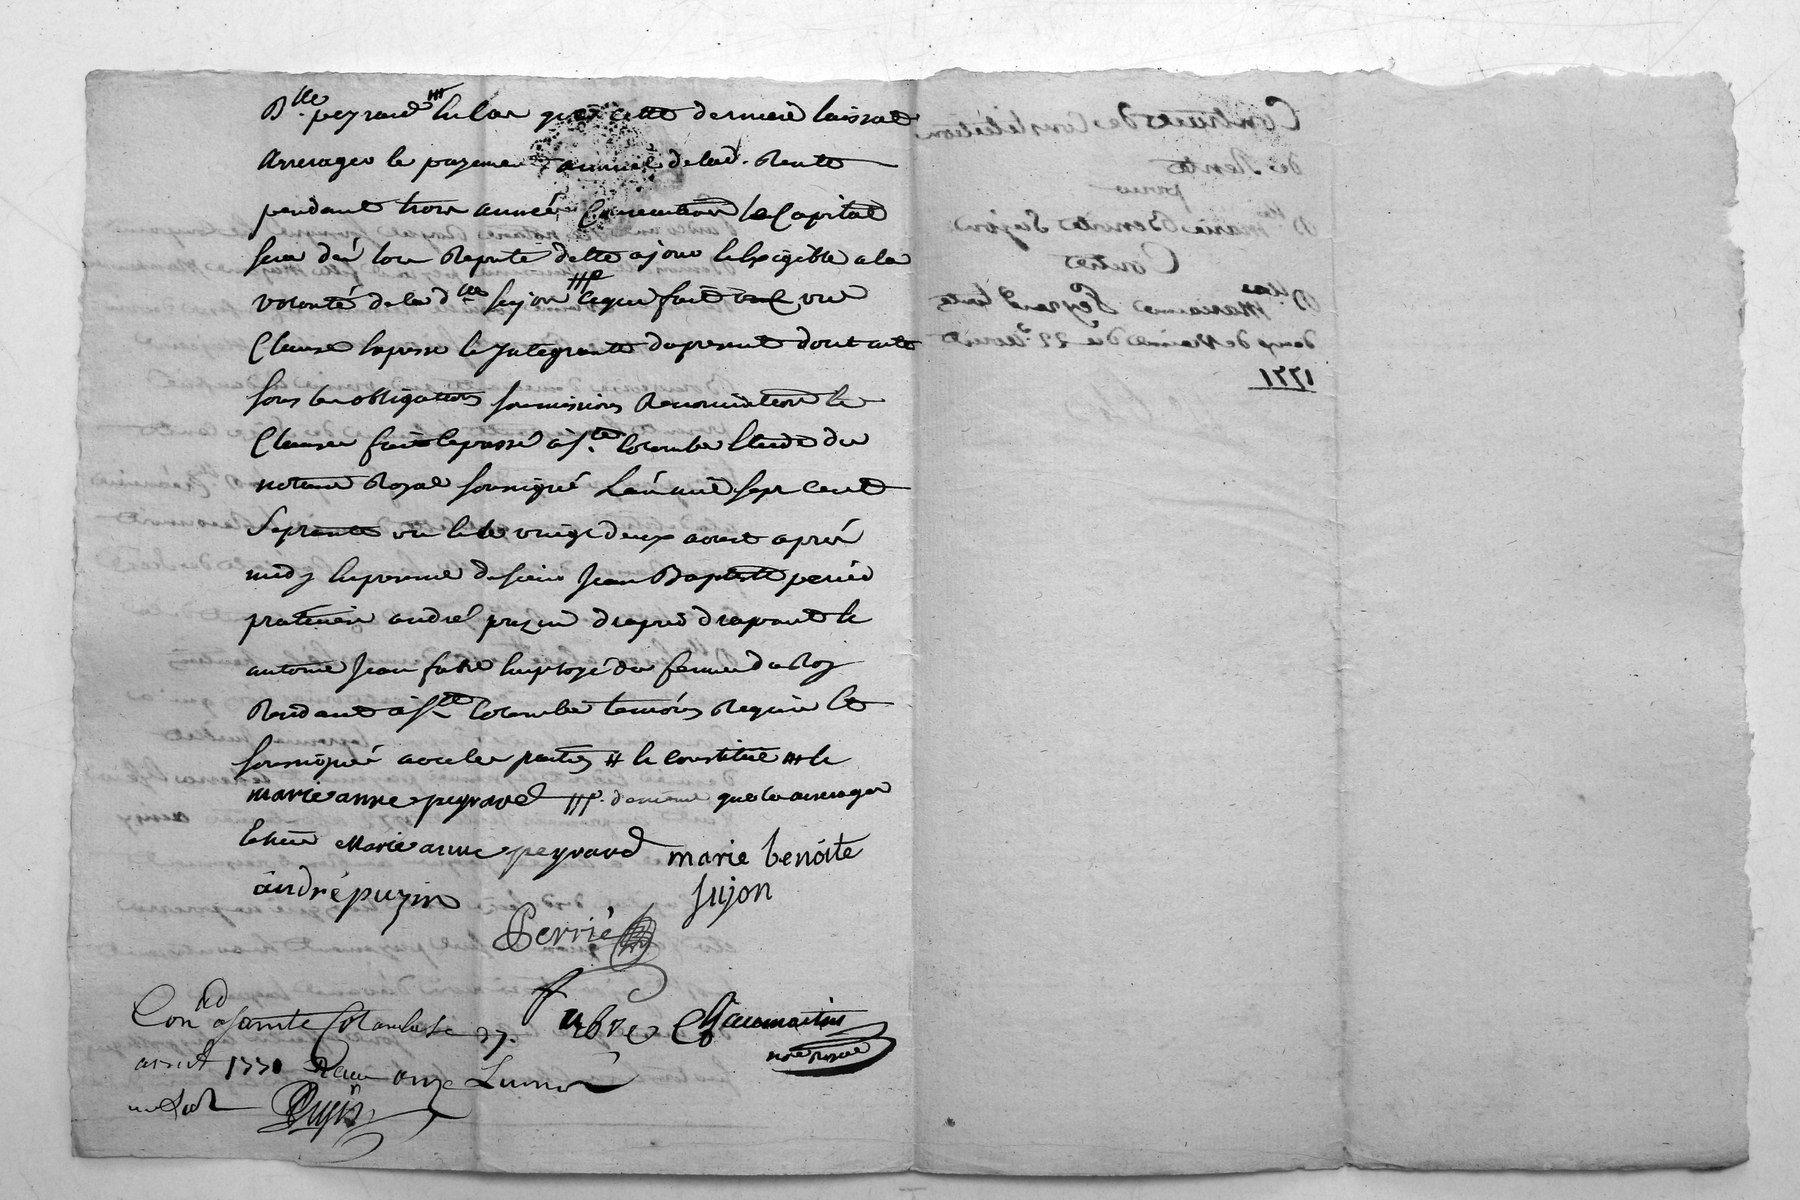 D.lle peyrard # en cas que cette derniere laissat
arrerager le payement annuel de lad. Rente
pendant trois années Consecutives le Capital
sera dés lors Reputé dette a jour et Exigible a la
volonté de la d.lle sujon ce qui fait une
Clause Expresse et Integrante du present dont acte
sous les obligations soumissions Renonciations et
Clauses fait et passé à S.te Colombe Etude du
notaire Royal soussigné L'an mil sept Cent
Septante un et le vingt deux aout après
midy En presence de sieur Jean Baptiste perrié
praticien andré puzin drapier drapant et
antoine Jean fabre Employé des fermes du Roy
Residants à S.te Colombe temoins Requis Et
soussignés avec les parties # et constitue et
marie anne peyrard que les arrerages
Echus Marie anne peyrard marie benoite
sujon
andré puzin
Perrié
fabre Chaumartin
not.re Royal
Con.lé a Sainte Colombe le 27.
aoust 1771 Reçu onze Livres
Contract de Constitution
de Rente
pour
D.lle Marie Benoite Sujon
Contre
D.lles Marianne Peyrard
du 22.e aoust
1771